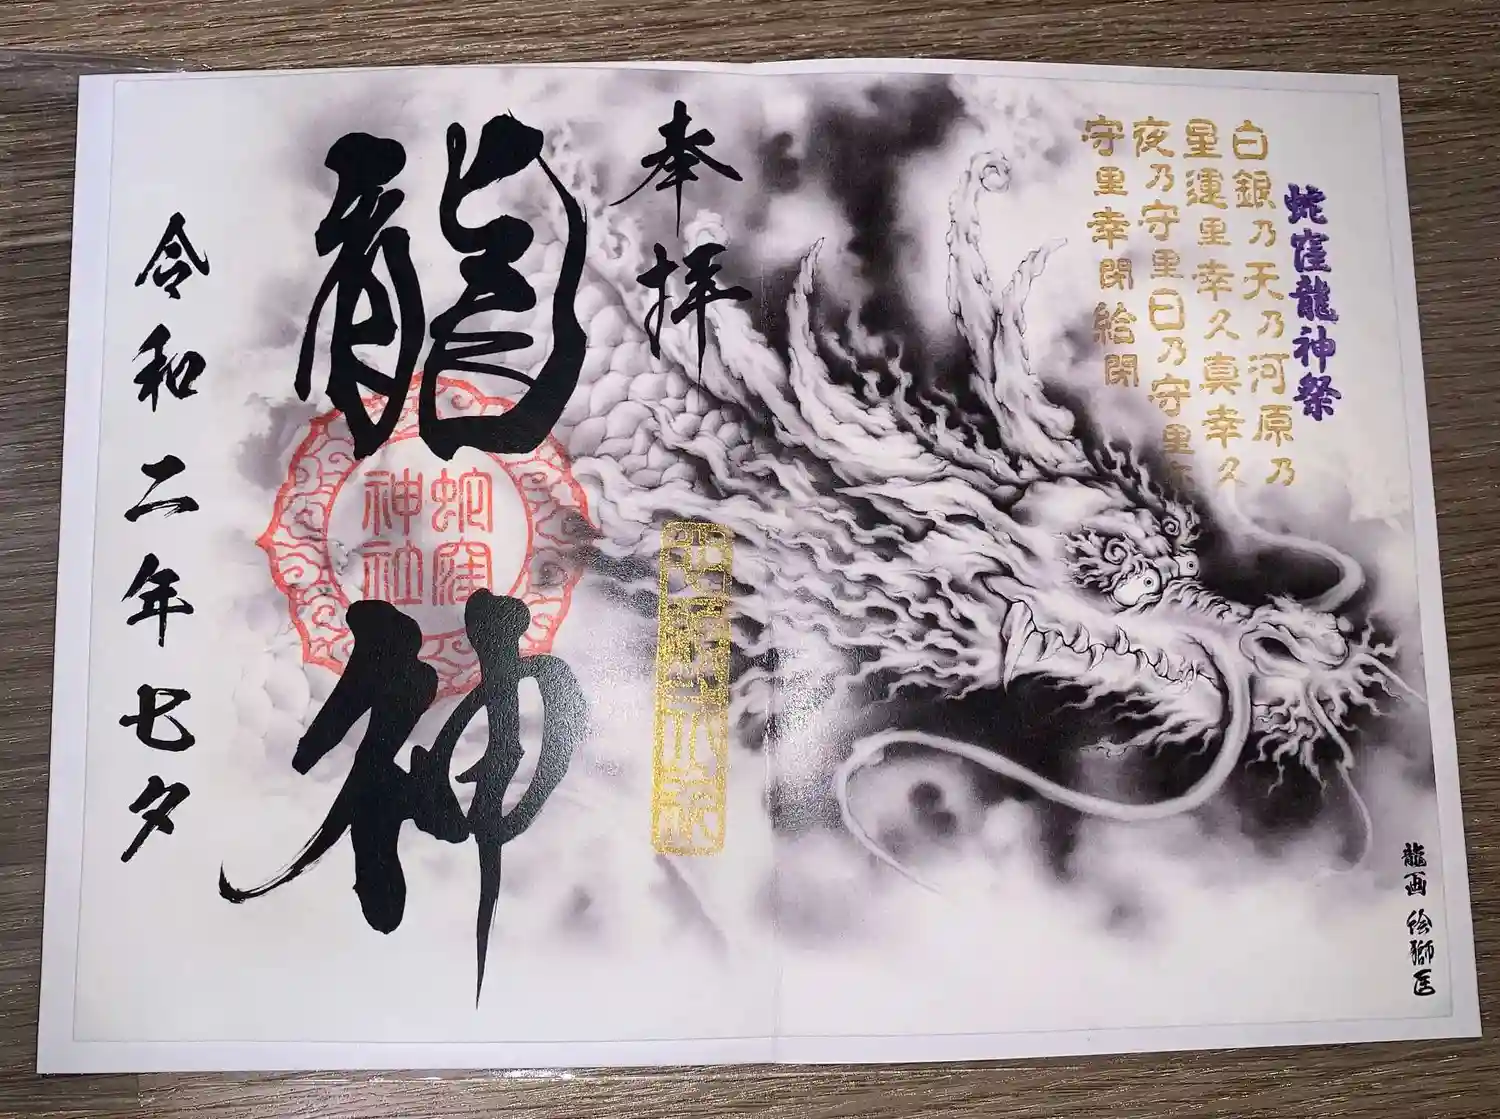 蛇窪龍神祭
白銀乃天乃河原乃
星運里幸久真幸久
夜乃守里日乃守里
守里幸閇給閇
奉拝
龍神
蛇窪
神社
令和二年七夕
龍画 絵獅